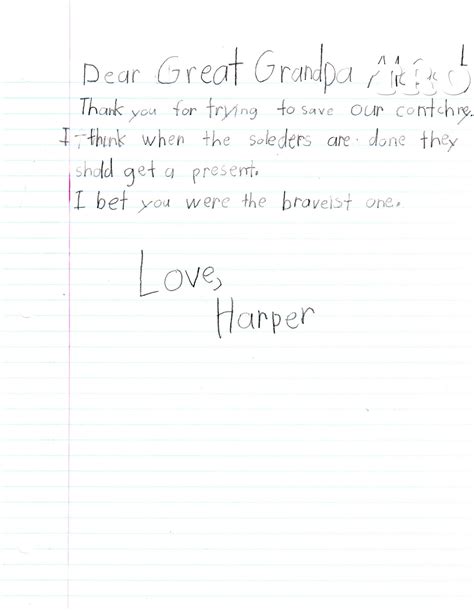 Dear Great Grandpa
Thank you for trying to save our contchre.
I think when the soleders are done they
shold get a present.
I bet you were the braveist one.
Love,
Harper